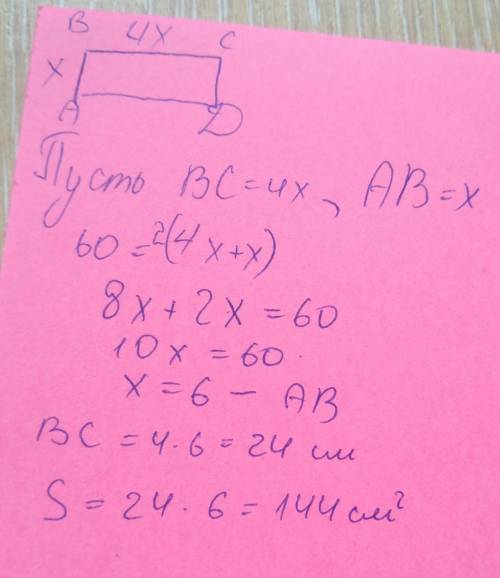 B 4x C
x
A D
Пусть BC=4x, AB=x
60=2(4x+x)
8x+2x=60
10x=60.
x=6 - AB
BC=4·6=24 см
S=24·6=144 см²